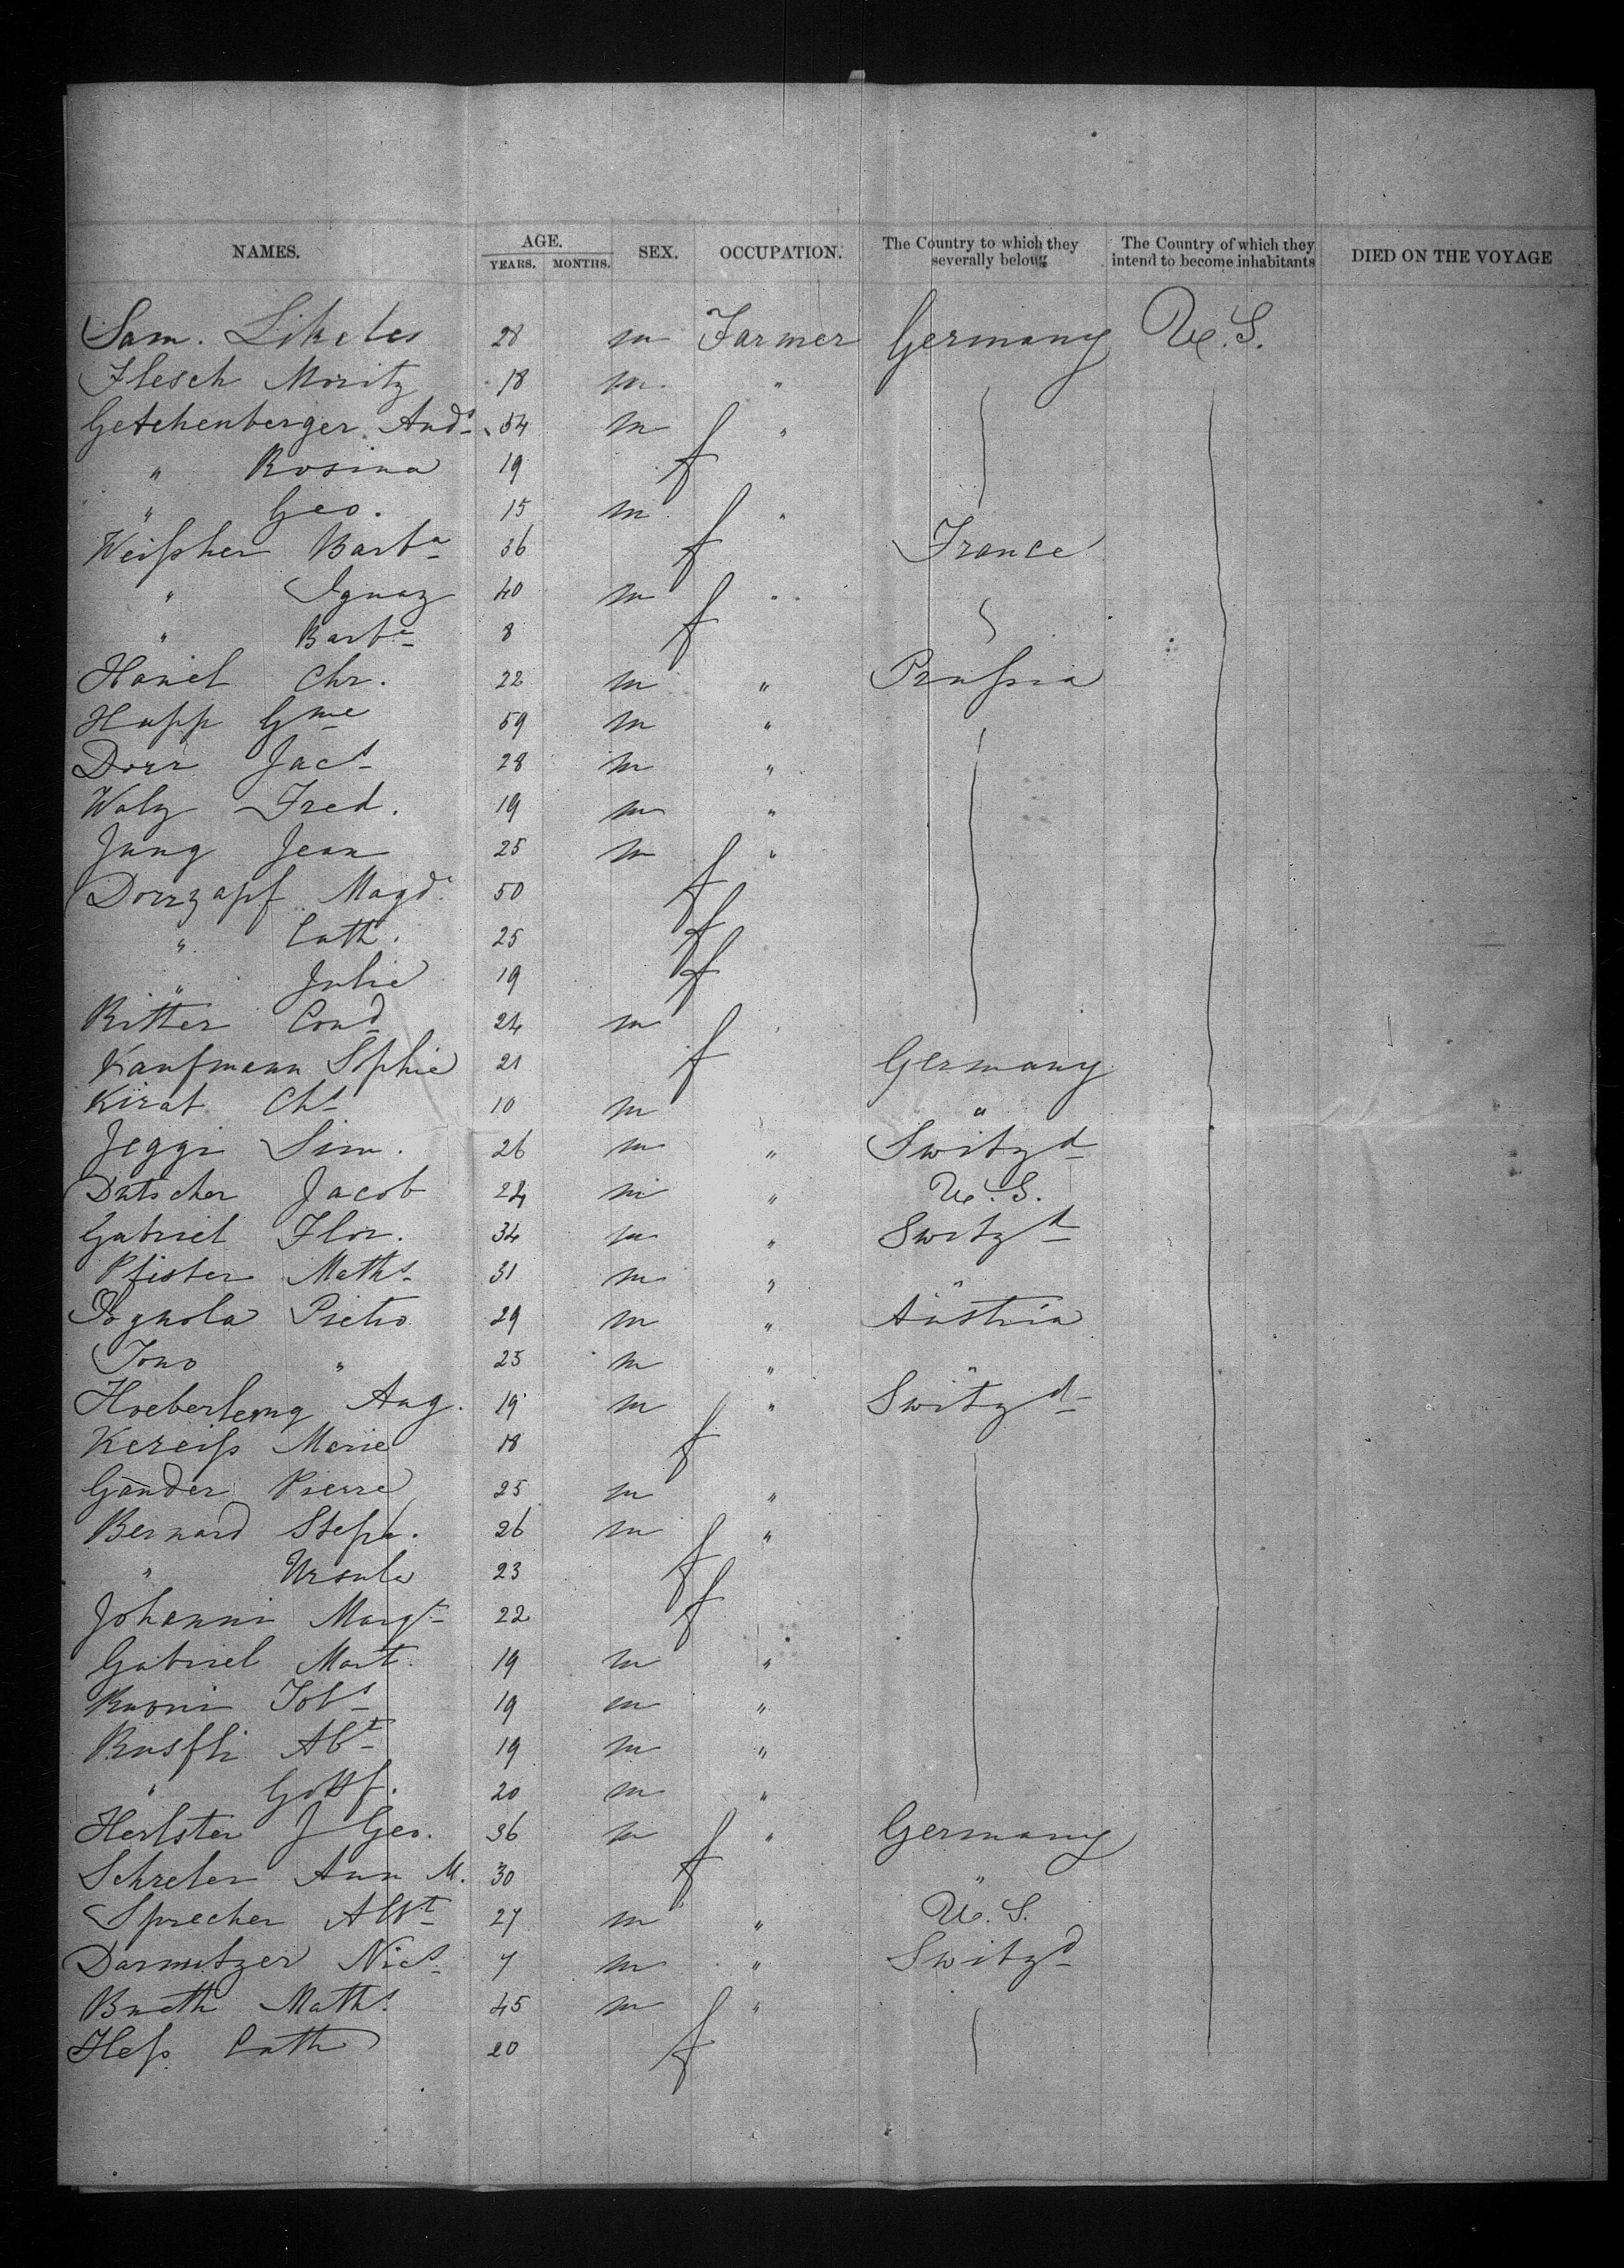 NAMES. AGE. SEX. OCCUPATION. The Country to which they severally belong The Country of which they intend to become inhabitants DIED ON THE VOYAGE
YEARS. MONTHS.
Sam. Likeles 28 m Farmer Germany U.S.
Flesch Moritz 18 m "
Getchenberger And. 54 m "
" Rosina 19 f
" Geo. 15 m "
Weißher Barba 36 f France
" Ignaz 40 m "
" Barba 8 f
Hanel Chr. 22 m " Prußia
Hupp Gme 59 m "
Dorr Jacs 28 m "
Walz Fred. 19 m "
Jung Jean 25 m "
Dorrzapf Magd. 50 f
" Cath. 25 f
" Julie 19 f
Ritter Cond 24 m
Kaufmann Sophie 21 f Germany
Kirat Chs 10 m "
Jeggi Sim. 26 m " Switzd
Dutscher Jacob 24 m " U.S.
Gabriel Flor. 34 m " Switzd
Pfister Maths 31 m " "
Pognola Pietro 29 m " Austria
Tono " 25 m " "
Aug. 19 m " Switzd
Kereiß Marie 18 f
Gander Pierre 25 m "
Bernard Steph. 26 m "
" Ursula 23 f
Johanni Margt 22 f
Gabriel Mart. 19 m "
Ruoni Jobs 19 m "
Rusfli Abt 19 m "
" Gottf. 20 m "
Herlster J Geo. 36 m " Germany
Schreler Ann M. 30 f "
Sprecher Albt 27 m " U.S.
Darmutzer Nics 7 m " Switzd
Bueth Maths 45 m "
Heß Cath 20 f